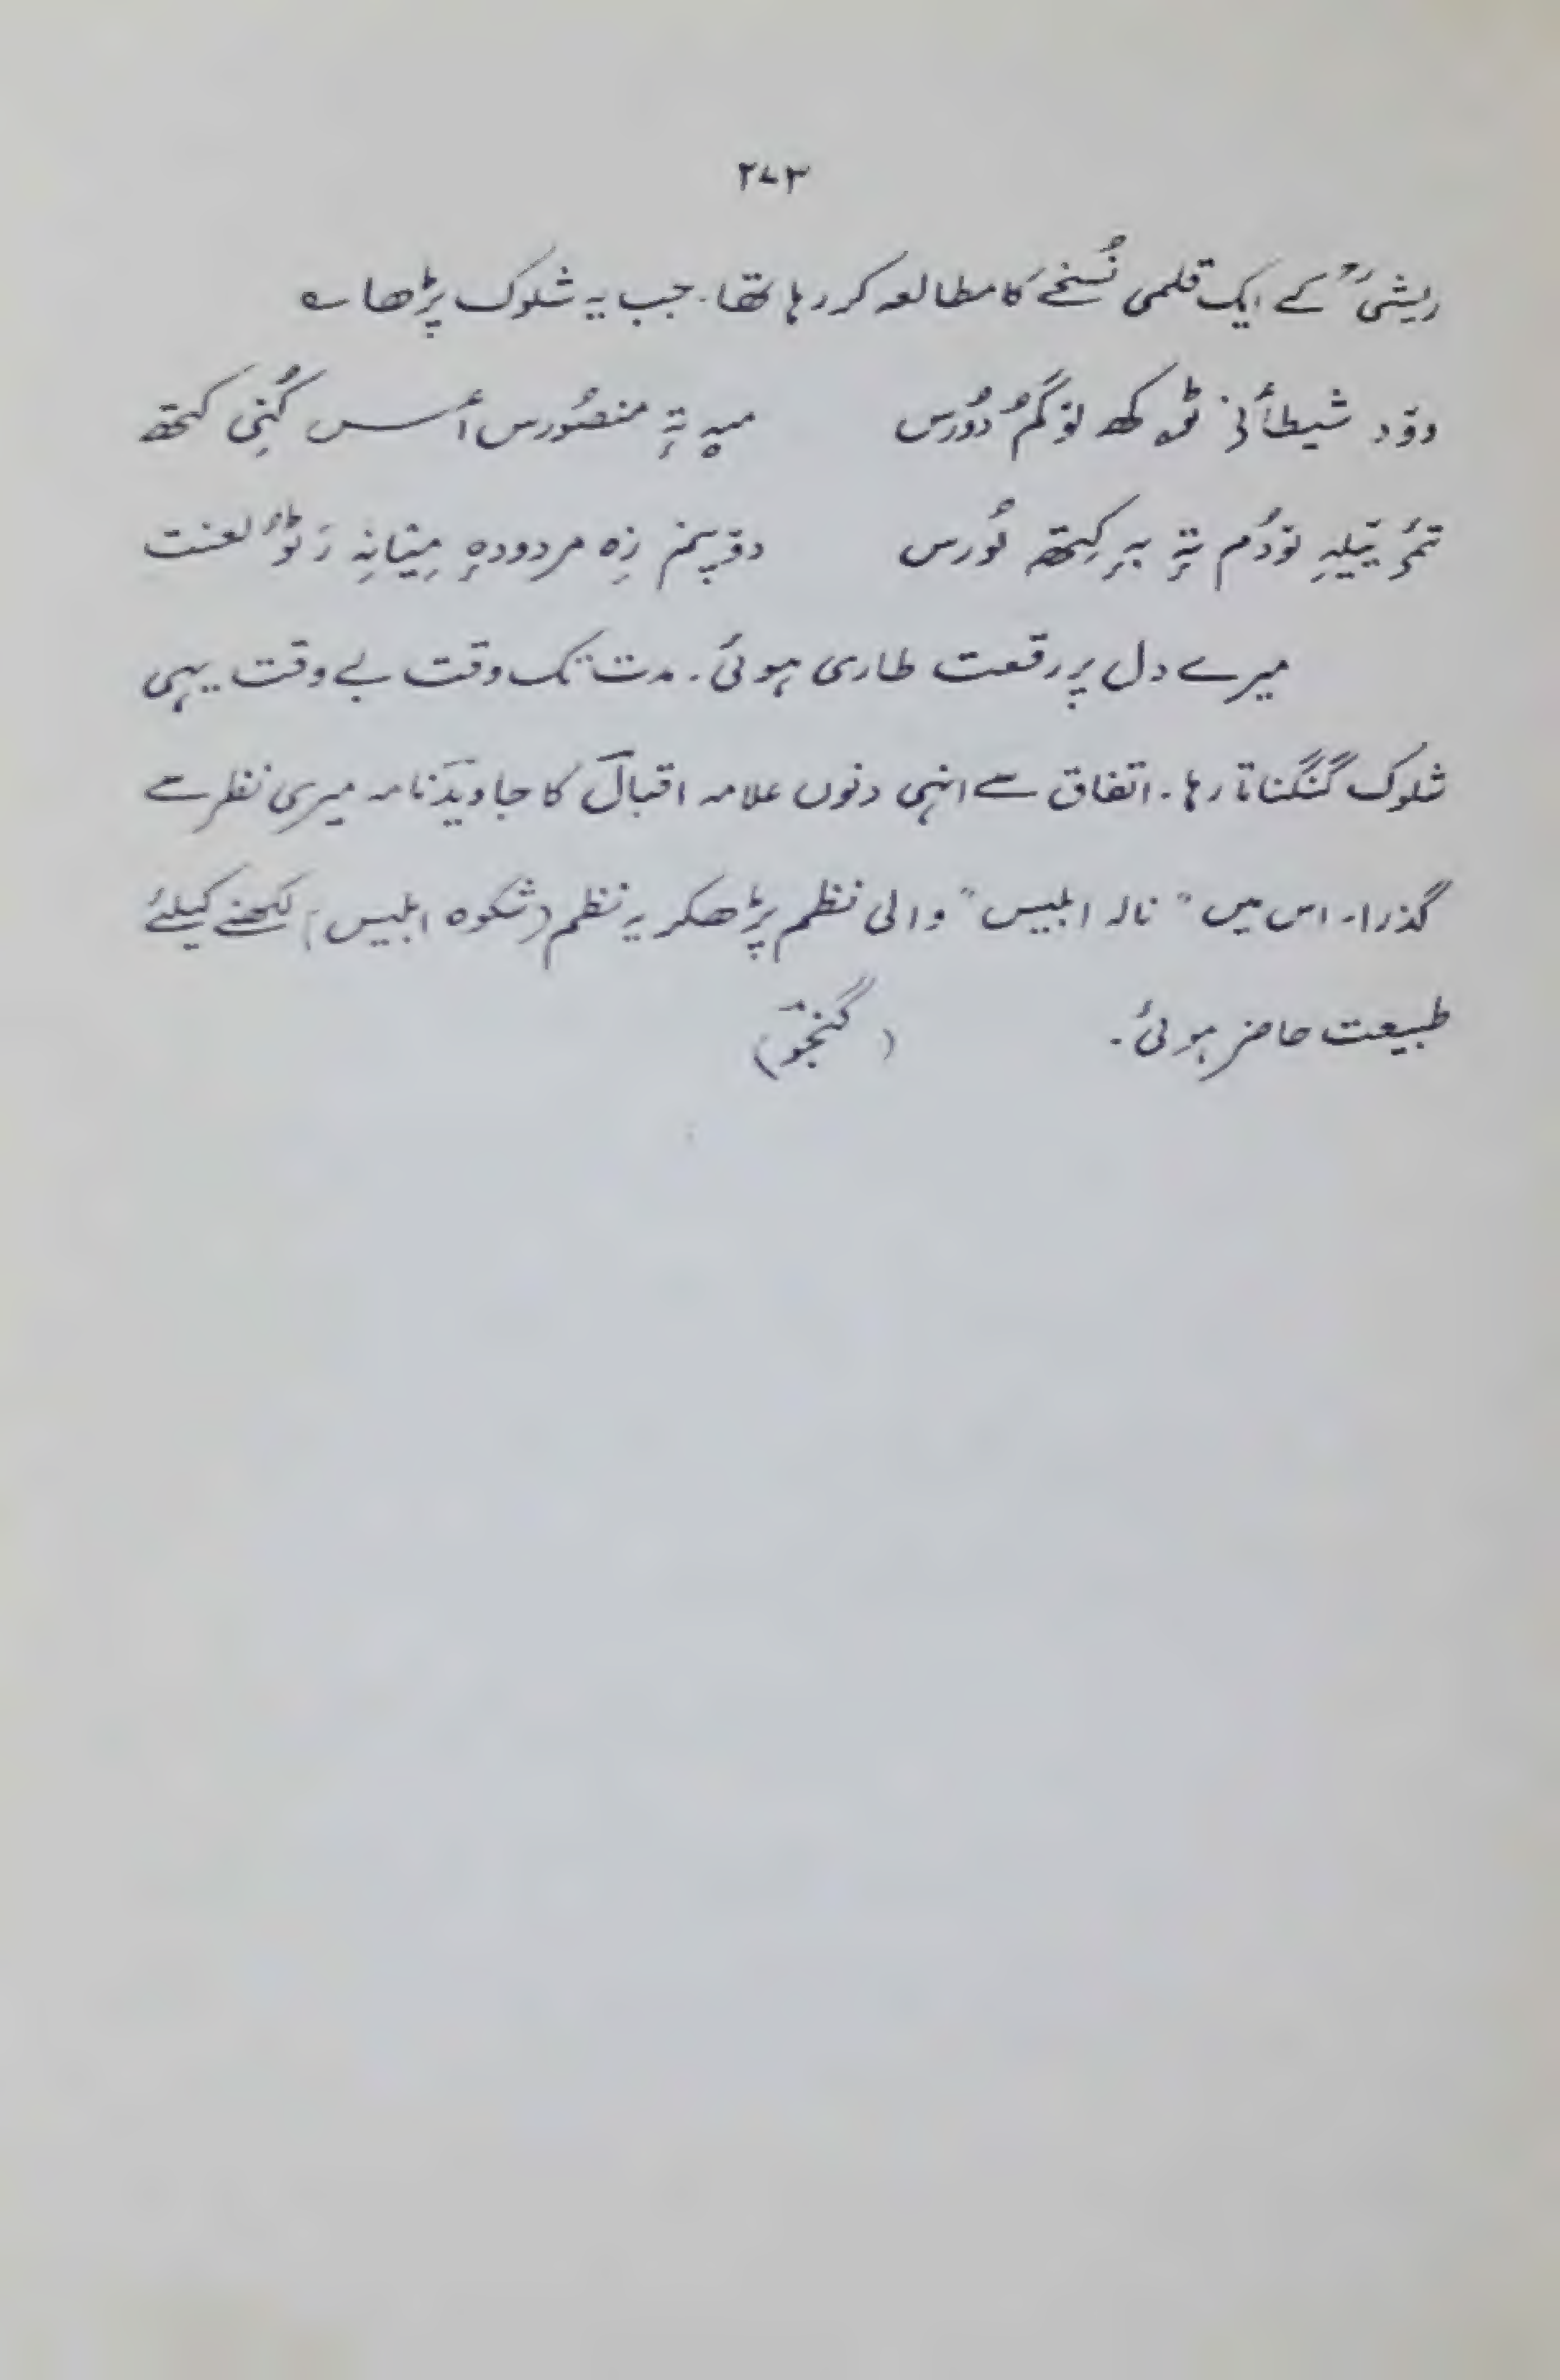 ۲۷۳
ریشیؒ کے ایک قلمی نُسخے کا مطالعہ کر رہا تھا۔ جب یہ شلوک پڑھا ؎
دوٚد شیطأنۍ ٹھ کھ لوٚگُم دوُرس میہِ تہٕ منصُورس أس کُنِی کتھ
تمۍ تیٚلہِ نوٚدُم تہٕ بہٕ کِتھ نُورس دوٚپنم زِہ مردودہٕ مِیٚانِہ رَٹو لعنت
میرے دل پر رقعت طاری ہوئی۔ مدت تک وقت بے وقت یہی
شلوک گنگناتا رہا۔ اتفاق سے انہی دنوں علامہ اقبالؔ کا جاوید نامہ میری نظر سے
گذرا۔ اس میں "نالہ ابلیس" والی نظم پڑھکر یہ نظم (شکوہ ابلیس) لکھنے کیلئے
طبیعت حاضر ہوئی۔ (گنجوؔ)